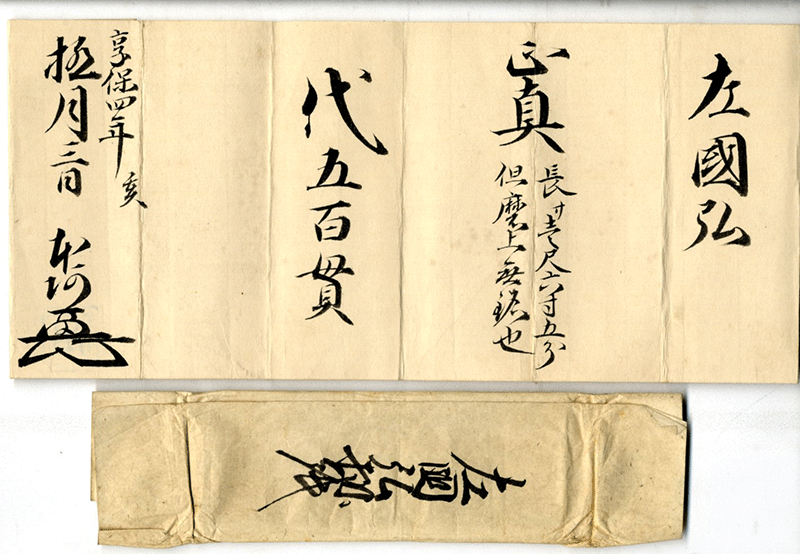 左國弘
正真
長サ壱尺六寸五分
但磨上無銘也
代五百貫
享保四年
亥
極月三日
本阿
左國弘折帋